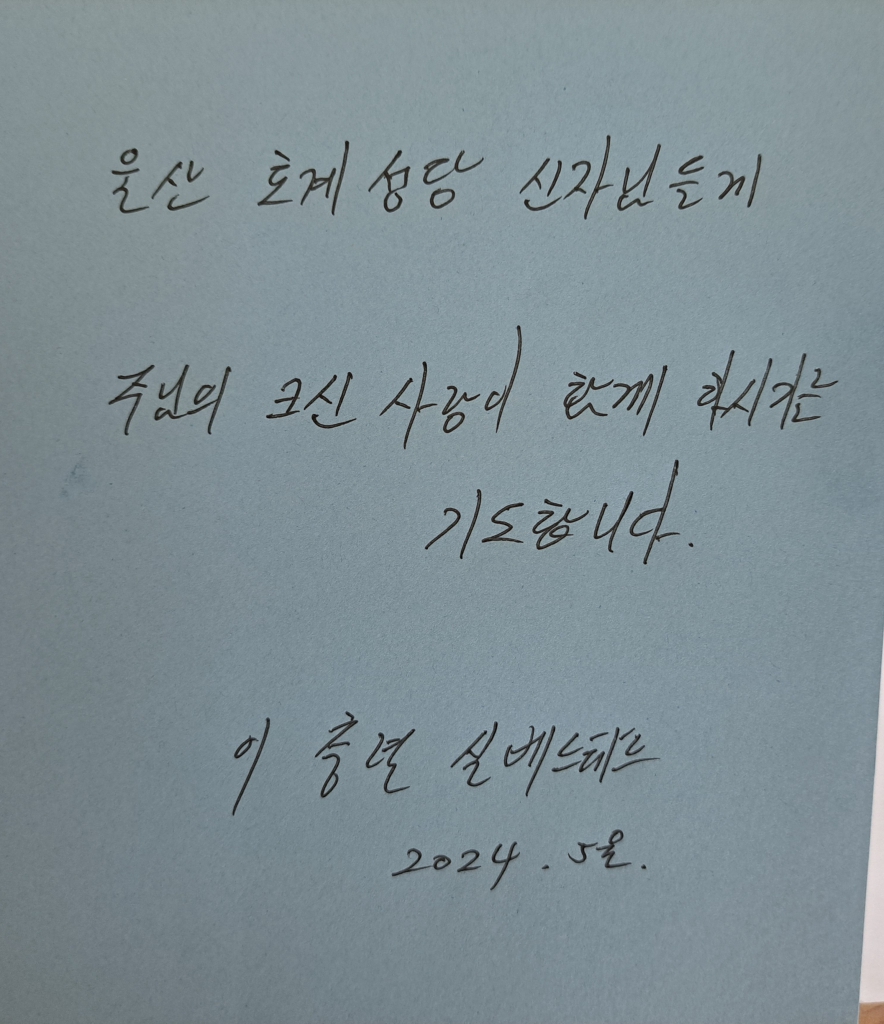 울산 호계성당 신자님들께
주님의 크신 사랑이 함께 하시기를
기도합니다.
이 충렬 실베스테르
2024. 5월.